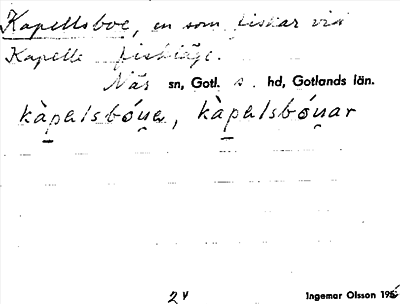 Kapellsboe, en som fiskar vid
Kapelle fiskläge.
När sn, Gotl. s. hd, Gotlands län.
kàpalsbóu̯a, kàpalsbóu̯ar
24 Ingemar Olsson 195